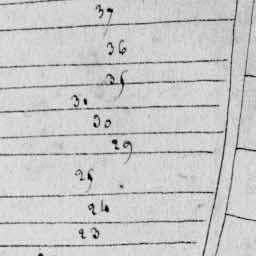 37
36
35
31
30
29
25
24
23